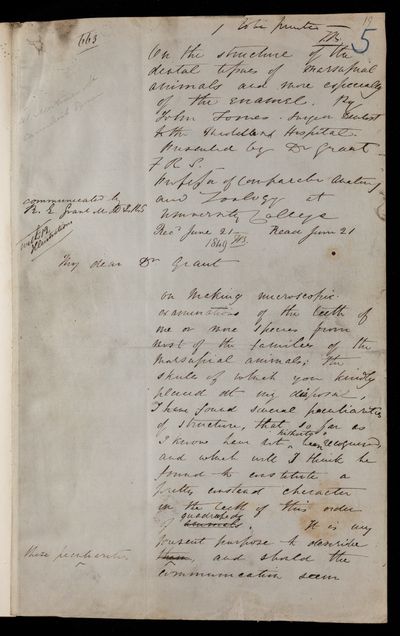 663
19
5
On the structure of the
dental tissues of marsupial
animals and more especially
of the enamel. By
John Tomes. Surgeon Dentist
to the Middlesex Hospital.
Presented by Dr Grant
F R S.
Professor of Comparative Anatomy
and Zoology at
University College
communicated by
R. E. Grant M.D. F.R.S
Recd June 21 Read June 21
1849
with
Illustrations
My dear Dr Grant
on making microscopic
examinations of the teeth of
one or more species from
most of the families of the
marsupial animals; the
skulls of which you kindly
placed at my disposal,
I have found several peculiarities
of structure, that so far as
I know have not hitherto been recognised,
and which will I think be
found to constitute a
pretty constant character
in the teeth of this order
of quadrupeds. It is my
present purpose to describe
these peculiarities, and should the
communication seem